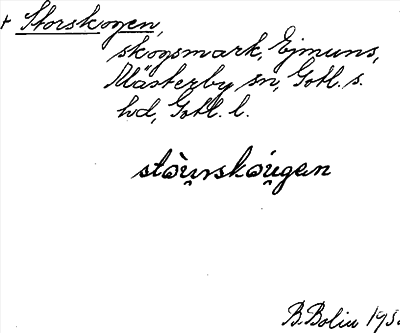 + Storskogen,
skogsmark, Ejmuns,
Mästerby sn, Gotl. s.
hd, Gotl. l.
stòu̯rskóu̯gen
B. Bolin 195